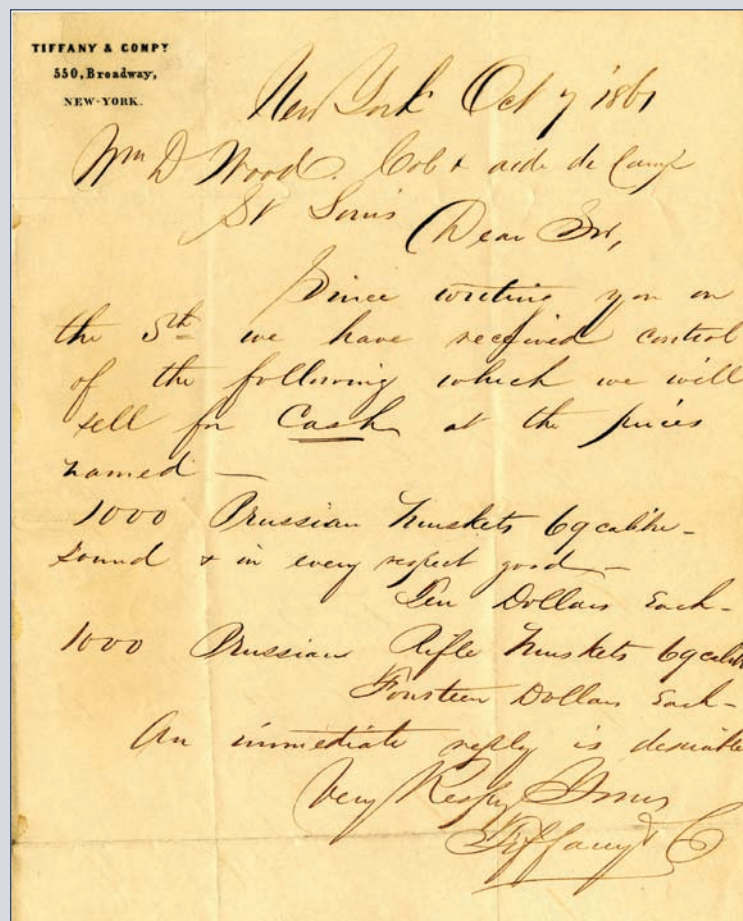 TIFFANY & COMPY
550, Broadway,
NEW-YORK.
New York Oct 7 1861
Wm D Wood. Col & aide de Camp
St Louis
Dear Sir,
Since writing you on
the 5th we have received control
of the following which we will
sell for Cash at the prices
named —
1000 Prussian Muskets 69 calibre —
sound & in every respect good —
Ten Dollars Each —
1000 Prussian Rifle Muskets 69 calibre
Fourteen Dollars Each —
An immediate reply is desirable
Very Respy Yours
Tiffany & Co